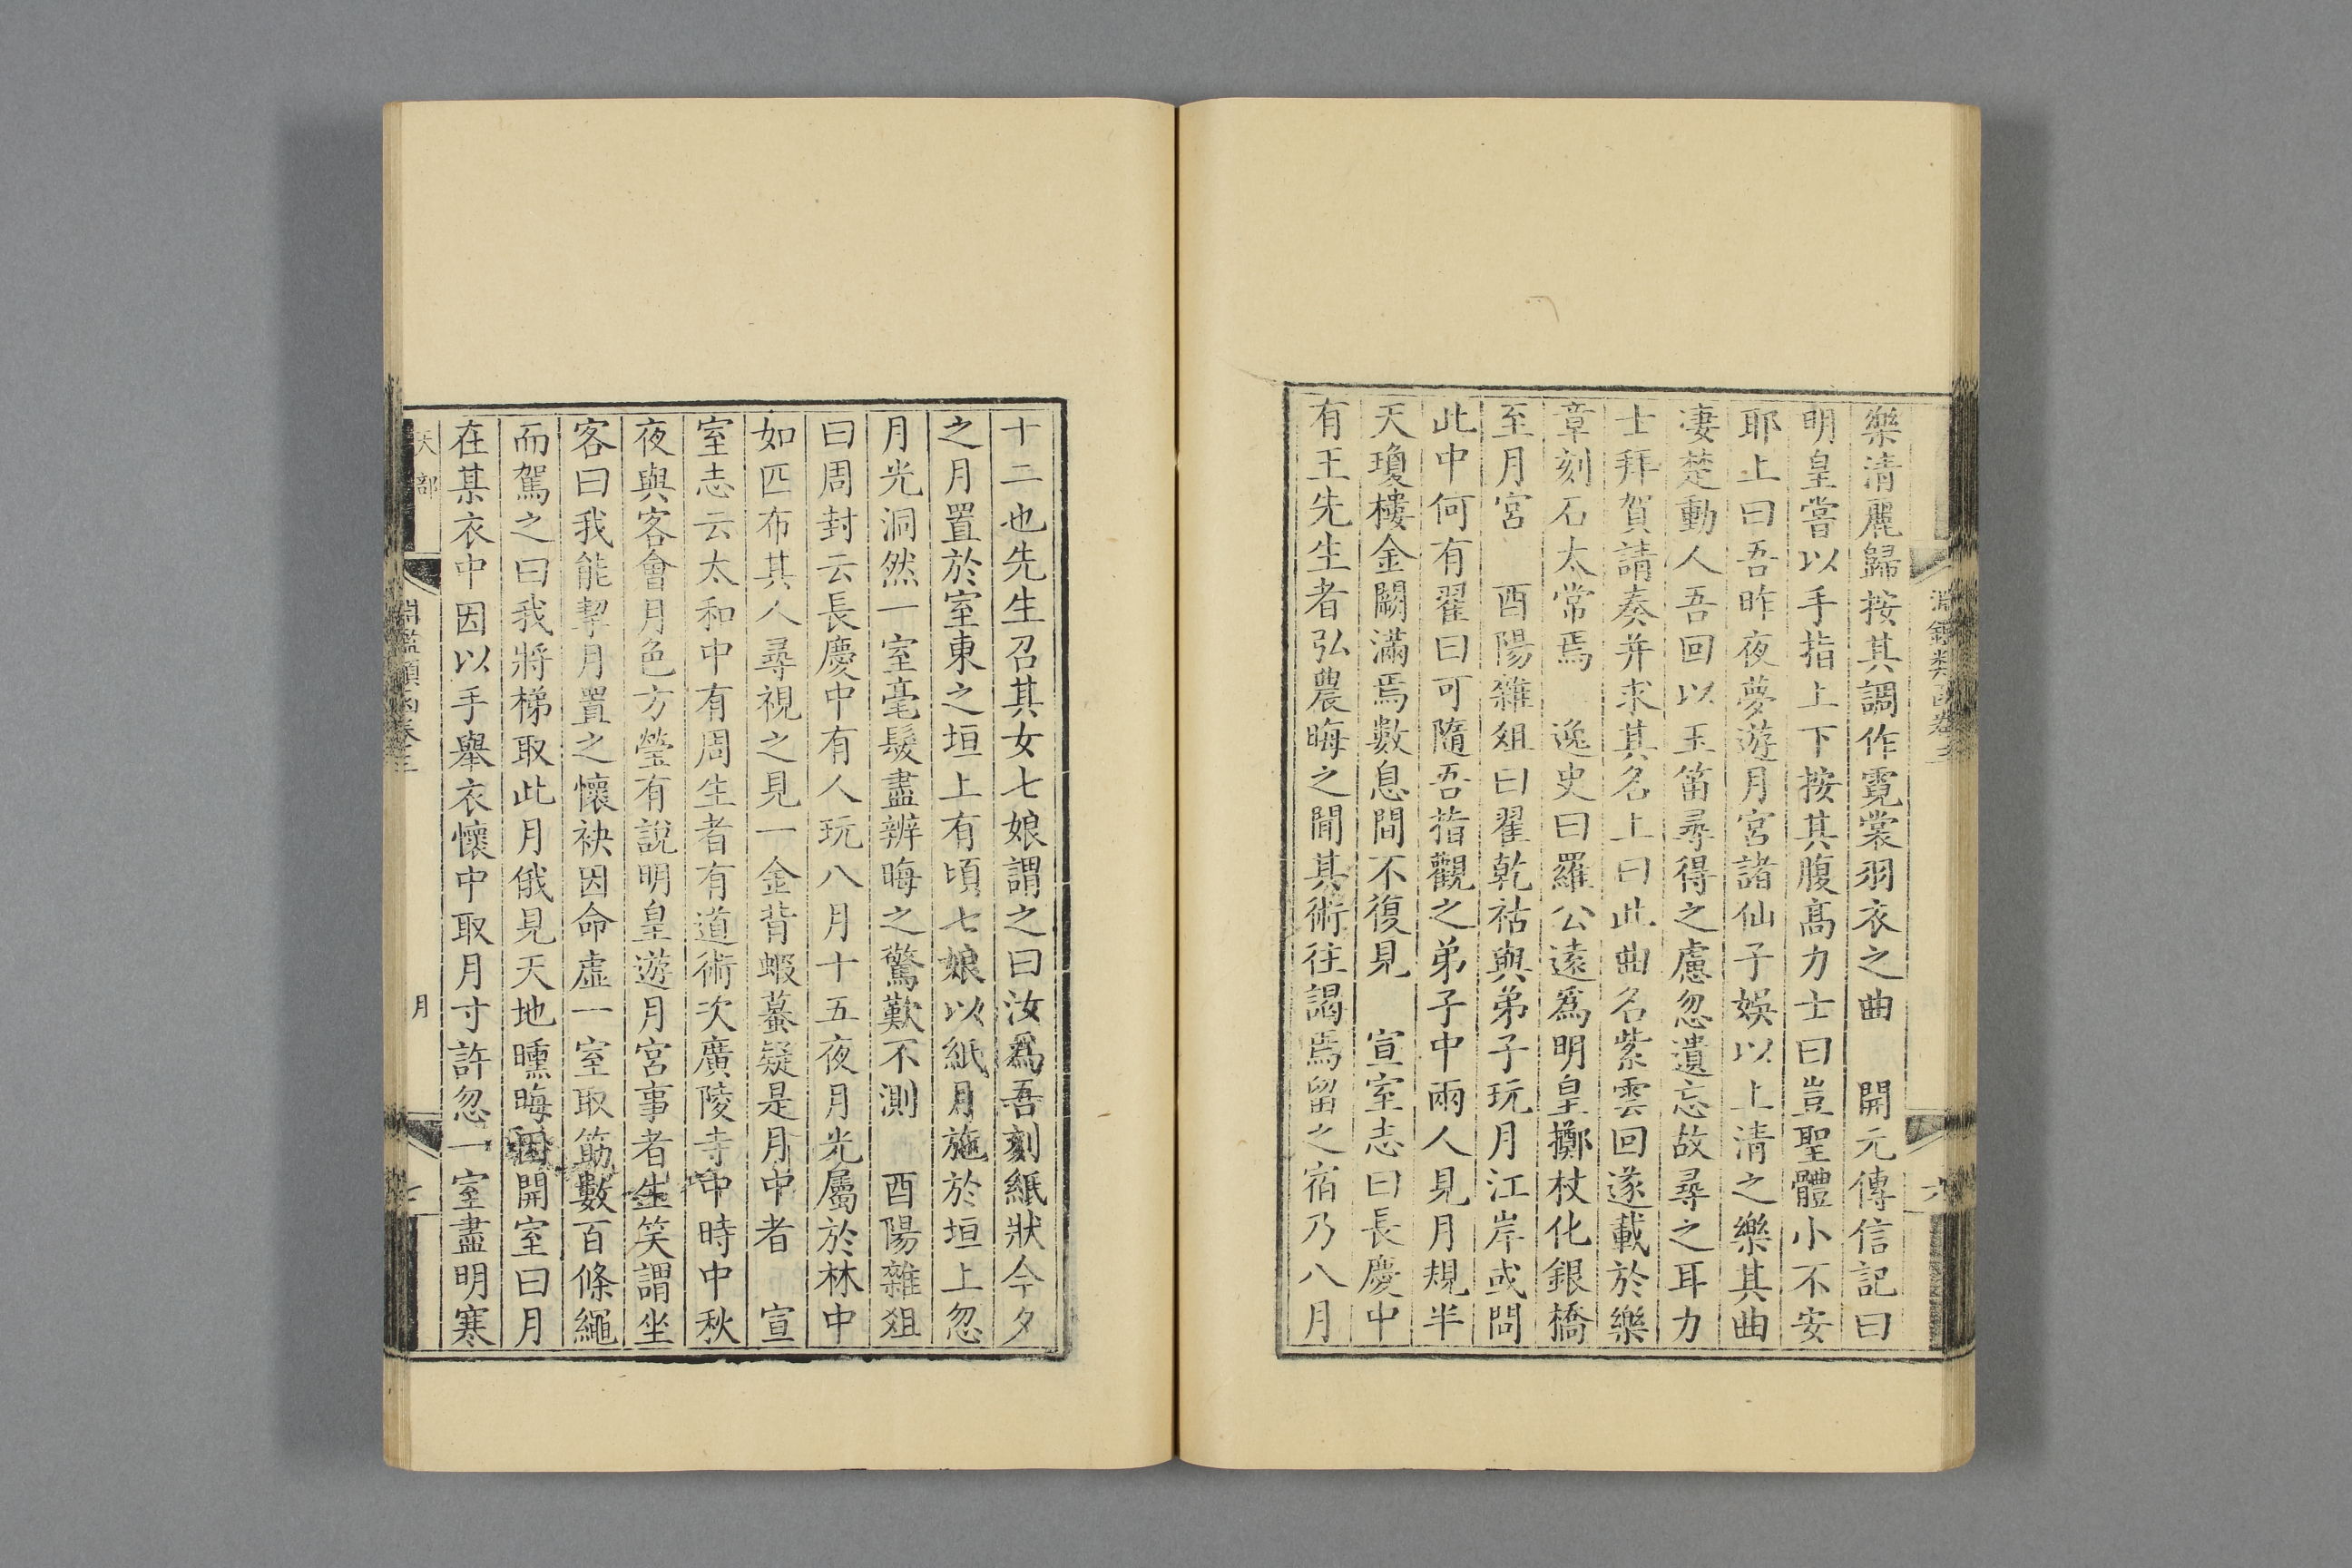 樂清麗歸按其調作霓裳羽衣之曲　開元傳信記曰
明皇嘗以手指上下按其腹髙力士曰豈聖體小不安
耶上曰吾昨夜夢遊月宮諸仙子娛以上清之樂其曲
凄楚動人吾回以玉笛尋得之慮忽遺忘故尋之耳力
士拜賀請奏并求其名上曰此曲名紫雲回遂載於樂
章刻石太常焉　逸史曰羅公遠爲明皇擲杖化銀橋
至月宮　酉陽雜俎曰翟乾祐與弟子玩月江岸或問
此中何有翟曰可隨吾指觀之弟子中兩人見月規半
天瓊樓金闕滿焉數息間不復見　宣室志曰長慶中
有王先生者弘農晦之聞其術往謁焉留之宿乃八月
十二也先生召其女七娘謂之曰汝爲吾刻紙狀今夕
之月置於室東之垣上有頃七娘以紙月施於垣上忽
月光洞然一室毫髮盡辨晦之驚歎不測　酉陽雜俎
曰周封云長慶中有人玩八月十五夜月光屬於林中
如匹布其人尋視之見一金背蝦蟇疑是月中者　宣
室志云太和中有周生者有道術次廣陵寺中時中秋
夜與客會月色方瑩有說明皇遊月宮事者生笑謂坐
客曰我能挈月置之懷袂因命虛一室取筯數百條繩
而駕之曰我將梯取此月俄見天地曛晦因開室曰月
在某衣中因以手舉衣懷中取月寸許忽一室盡明寒
天部
淵鑑類函卷三
月